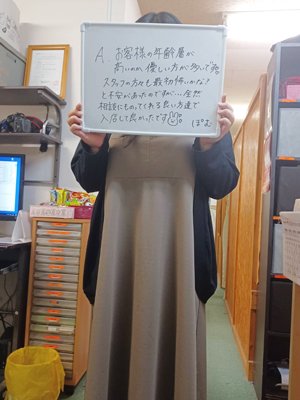 A. お客様の年齢層が
高いのか、優しい方が多いです。
スタッフの方々も最初怖いかな?
と不安があったのですが…全然
相談にものってくれる良い方達で
入店して良かったです
ぽむ